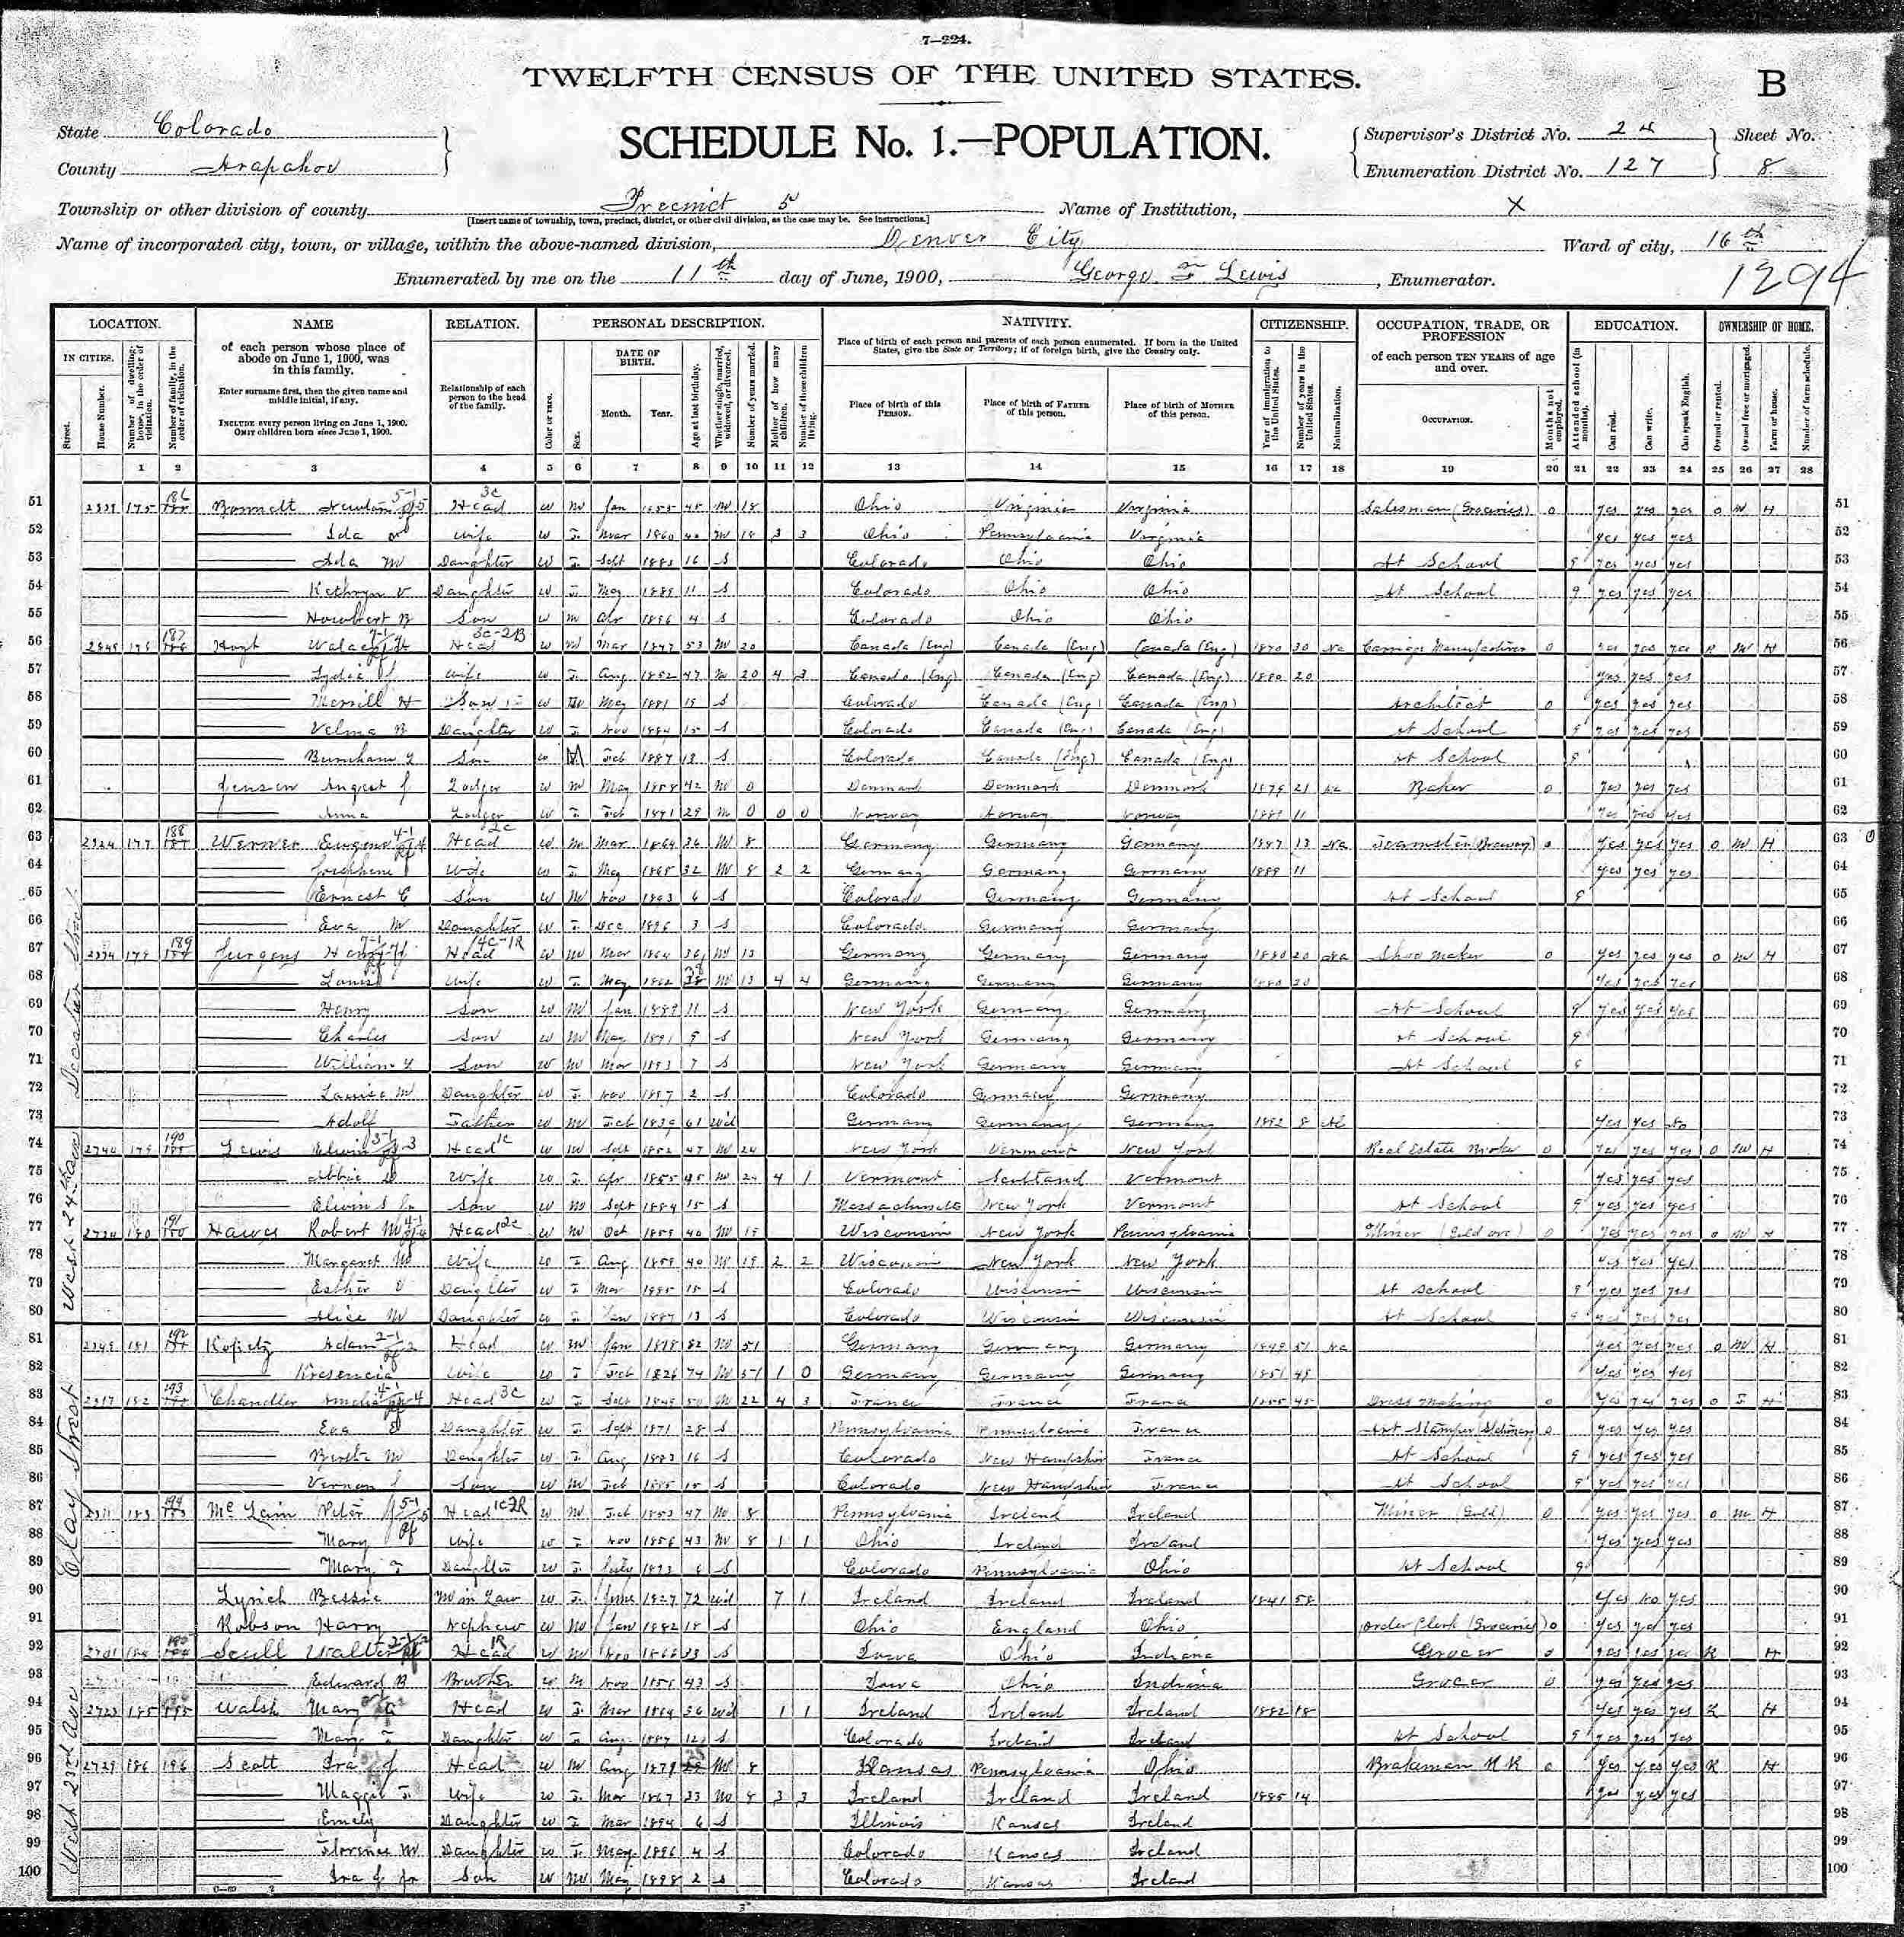 7—224.
TWELFTH CENSUS OF THE UNITED STATES.
B
State Colorado
County Arapahoe
SCHEDULE No. 1.—POPULATION.
Supervisor's District No. 24
Enumeration District No. 127
Sheet No. 8
Township or other division of county Precinct 5 Name of Institution, X
[Insert name of township, town, precinct, district, or other civil division, as the case may be. See instructions.]
Name of incorporated city, town, or village, within the above-named division, Denver City Ward of city, 16th
Enumerated by me on the 11th day of June, 1900, George F Lewis, Enumerator.
1294
LOCATION. NAME RELATION. PERSONAL DESCRIPTION. NATIVITY. CITIZENSHIP. OCCUPATION, TRADE, OR PROFESSION EDUCATION. OWNERSHIP OF HOME.
IN CITIES. Street. House Number. Number of dwelling-house, in the order of visitation. Number of family, in the order of visitation.
of each person whose place of abode on June 1, 1900, was in this family.
Enter surname first, then the given name and middle initial, if any.
INCLUDE every person living on June 1, 1900. OMIT children born since June 1, 1900.
Relationship of each person to the head of the family.
Color or race. Sex. DATE OF BIRTH. Month. Year. Age at last birthday. Whether single, married, widowed, or divorced. Number of years married. Mother of how many children. Number of these children living.
Place of birth of each person and parents of each person enumerated. If born in the United States, give the State or Territory; if of foreign birth, give the Country only.
Place of birth of this PERSON. Place of birth of FATHER of this person. Place of birth of MOTHER of this person.
Year of immigration to the United States. Number of years in the United States. Naturalization.
of each person TEN YEARS of age and over.
OCCUPATION. Months not employed.
Attended school (in months). Can read. Can write. Can speak English.
Owned or rented. Owned free or mortgaged. Farm or house. Number of farm schedule.
1 2 3 4 5 6 7 8 9 10 11 12 13 14 15 16 17 18 19 20 21 22 23 24 25 26 27 28
51 175 186 Head W M Jan 45 M 18 Ohio Virginia Virginia Salesman (Groceries) 0 yes yes yes O M H 51
52 Ida Wife W F Mar 1860 40 M 18 3 3 Ohio Pennsylvania Virginia yes yes yes 52
53 Ada M Daughter W F Sept 1883 16 S Colorado Ohio Ohio At School 9 yes yes yes 53
54 Kathryn V Daughter W F May 11 S Colorado Ohio Ohio At School 9 yes yes yes 54
55 Son W M Apr 1896 4 S Colorado Ohio Ohio 55
56 176 187 Hoyt Head W M Mar 1847 53 M 20 Canada (Eng) Canada (Eng) Canada (Eng) 1870 30 Na Carriage Manufacturer 0 yes yes yes R M H 56
57 Wife W F Aug 1852 47 M 20 4 3 Canada (Eng) Canada (Eng) Canada (Eng) 1880 20 yes yes yes 57
58 Merrill H Son W M May 1881 19 S Colorado Canada (Eng) Canada (Eng) Architect 0 yes yes yes 58
59 Velma B Daughter W F Nov 1884 15 S Colorado Canada (Eng) Canada (Eng) At School 9 yes yes yes 59
60 Burnham Son W M Feb 1887 13 S Colorado Canada (Eng) Canada (Eng) At School 9 60
61 Jensen August J Lodger W M May 1858 42 M 0 Denmark Denmark Denmark 1879 21 Na Baker 0 yes yes yes 61
62 Anna Lodger W F Feb 1871 29 M 0 0 0 Norway Norway Norway 1889 11 yes yes yes 62
63 2324 177 188 Werner Eugene Head W M Mar 1864 36 M 8 Germany Germany Germany 1887 13 Na Teamster (Brewery) 0 yes yes yes O M H 63
64 Josephine Wife W F May 1868 32 M 8 2 2 Germany Germany Germany 1889 11 yes yes yes 64
65 Ernest E Son W M Nov 1893 6 S Colorado Germany Germany At School 9 65
66 Eva M Daughter W F Dec 1896 3 S Colorado Germany Germany 66
67 2334 178 189 Jurgens Henry Head W M Mar 1864 36 M 13 Germany Germany Germany 1880 20 Na Shoe maker 0 yes yes yes O M H 67
68 Louise Wife W F May 1862 38 M 13 4 4 Germany Germany Germany 1880 20 yes yes yes 68
69 Henry Son W M Jan 1889 11 S New York Germany Germany At School 9 yes yes yes 69
70 Charles Son W M May 1891 9 S New York Germany Germany At School 9 70
71 William Son W M Mar 1893 7 S New York Germany Germany At School 9 71
72 Louise M Daughter W F Nov 1897 2 S Colorado Germany Germany 72
73 Adolf Father W M Feb 1839 61 Wd Germany Germany Germany 1892 8 Al yes yes No 73
74 2740 179 190 Lewis Edwin Head W M Sept 1852 47 M 24 New York Vermont New York Real Estate Broker 0 yes yes yes O M H 74
75 Abbie Wife W F Apr 1855 45 M 24 4 1 Vermont Scotland Vermont yes yes yes 75
76 Edwin S Jr Son W M Sept 1884 15 S Massachusetts New York Vermont At School 9 yes yes yes 76
77 2734 180 191 Hawes Robert M Head W M Oct 1859 40 M 19 Wisconsin New York Pennsylvania Miner (Gold ore) 0 yes yes yes O M H 77
78 Margaret Wife W F Aug 1859 40 M 19 2 2 Wisconsin New York New York yes yes yes 78
79 Esther Daughter W F Mar 1885 15 S Colorado Wisconsin Wisconsin At School 9 yes yes yes 79
80 Alice M Daughter W F Jan 1887 13 S Colorado Wisconsin Wisconsin At School 9 yes yes yes 80
81 2345 181 192 Kopitz Adam Head W M Jan 1818 82 M 51 Germany Germany Germany 1849 51 Na yes yes yes O M H 81
82 Kresencia Wife W F Feb 1826 74 M 51 1 0 Germany Germany Germany 1851 49 yes yes yes 82
83 2317 182 193 Chandler Amelia Head W F Sept 1849 50 M 22 4 3 France France France 1855 45 Dress Making 0 yes yes yes O F H 83
84 Eva Daughter W F Sept 1871 28 S Pennsylvania Pennsylvania France Art Stamper (Stationery) 0 yes yes yes 84
85 Bertha M Daughter W F Aug 1883 16 S Colorado New Hampshire France At School 9 yes yes yes 85
86 Vernon Son W M Feb 1885 15 S Colorado New Hampshire France At School 9 yes yes yes 86
87 2311 183 194 McLain Peter Head W M Feb 1853 47 M 8 Pennsylvania Ireland Ireland Miner (Gold) 0 yes yes yes O M H 87
88 Mary Wife W F Nov 1856 43 M 8 1 1 Ohio Ireland Ireland yes yes yes 88
89 Mary F Daughter W F July 1893 6 S Colorado Pennsylvania Ohio At School 9 89
90 Lynch Bessie M in Law W F June 1827 72 Wd 7 1 Ireland Ireland Ireland 1841 58 yes No yes 90
91 Robson Harry Nephew W M Jan 1882 18 S Ohio England Ohio Order Clerk (Groceries) 0 yes yes yes 91
92 2701 184 195 Scull Walter Head W M Nov 1866 33 S Iowa Ohio Indiana Grocer 0 yes yes yes R H 92
93 Edward B Brother W M Nov 1856 43 S Iowa Ohio Indiana Grocer 0 yes yes yes 93
94 2723 185 195 Walsh Mary Head W F Mar 1864 36 Wd 1 1 Ireland Ireland Ireland 1882 18 yes yes yes R H 94
95 Mary F Daughter W F Aug 1887 12 S Colorado Ireland Ireland At School 9 yes yes yes 95
96 2729 186 196 Scott Ira J Head W M Aug M 8 Kansas Pennsylvania Ohio Brakeman R R 0 yes yes yes R H 96
97 Maggie F Wife W F Mar 1867 33 M 8 3 3 Ireland Ireland Ireland 1885 14 yes yes yes 97
98 Emely Daughter W F Mar 1894 6 S Illinois Kansas Ireland 98
99 Florence M Daughter W F May 1896 4 S Colorado Kansas Ireland 99
100 Ira J Jr Son W M May 1898 2 S Colorado Kansas Ireland 100
Decatur Street
West 24th Ave
Clay Street
West 23rd Ave